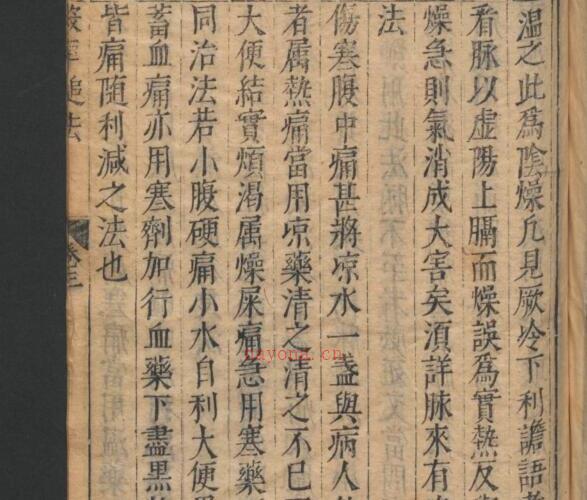 溫之此爲陰燥凢見厥冷下利譫語
看脉以虛陽上膈而燥誤爲實熱反
燥急則氣消成大害矣須詳脉來有
法
傷寒腹中痛甚將凉水一盞與病人
者属熱痛當用凉藥清之清之不已
大便結實煩渴属燥屎痛急用寒藥
同治法若小腹硬痛小水自利大便
蓄血痛亦用寒劑加行血藥下盡黒
皆痛随利减之法也
殺車槌法
卷三
dayona.cn